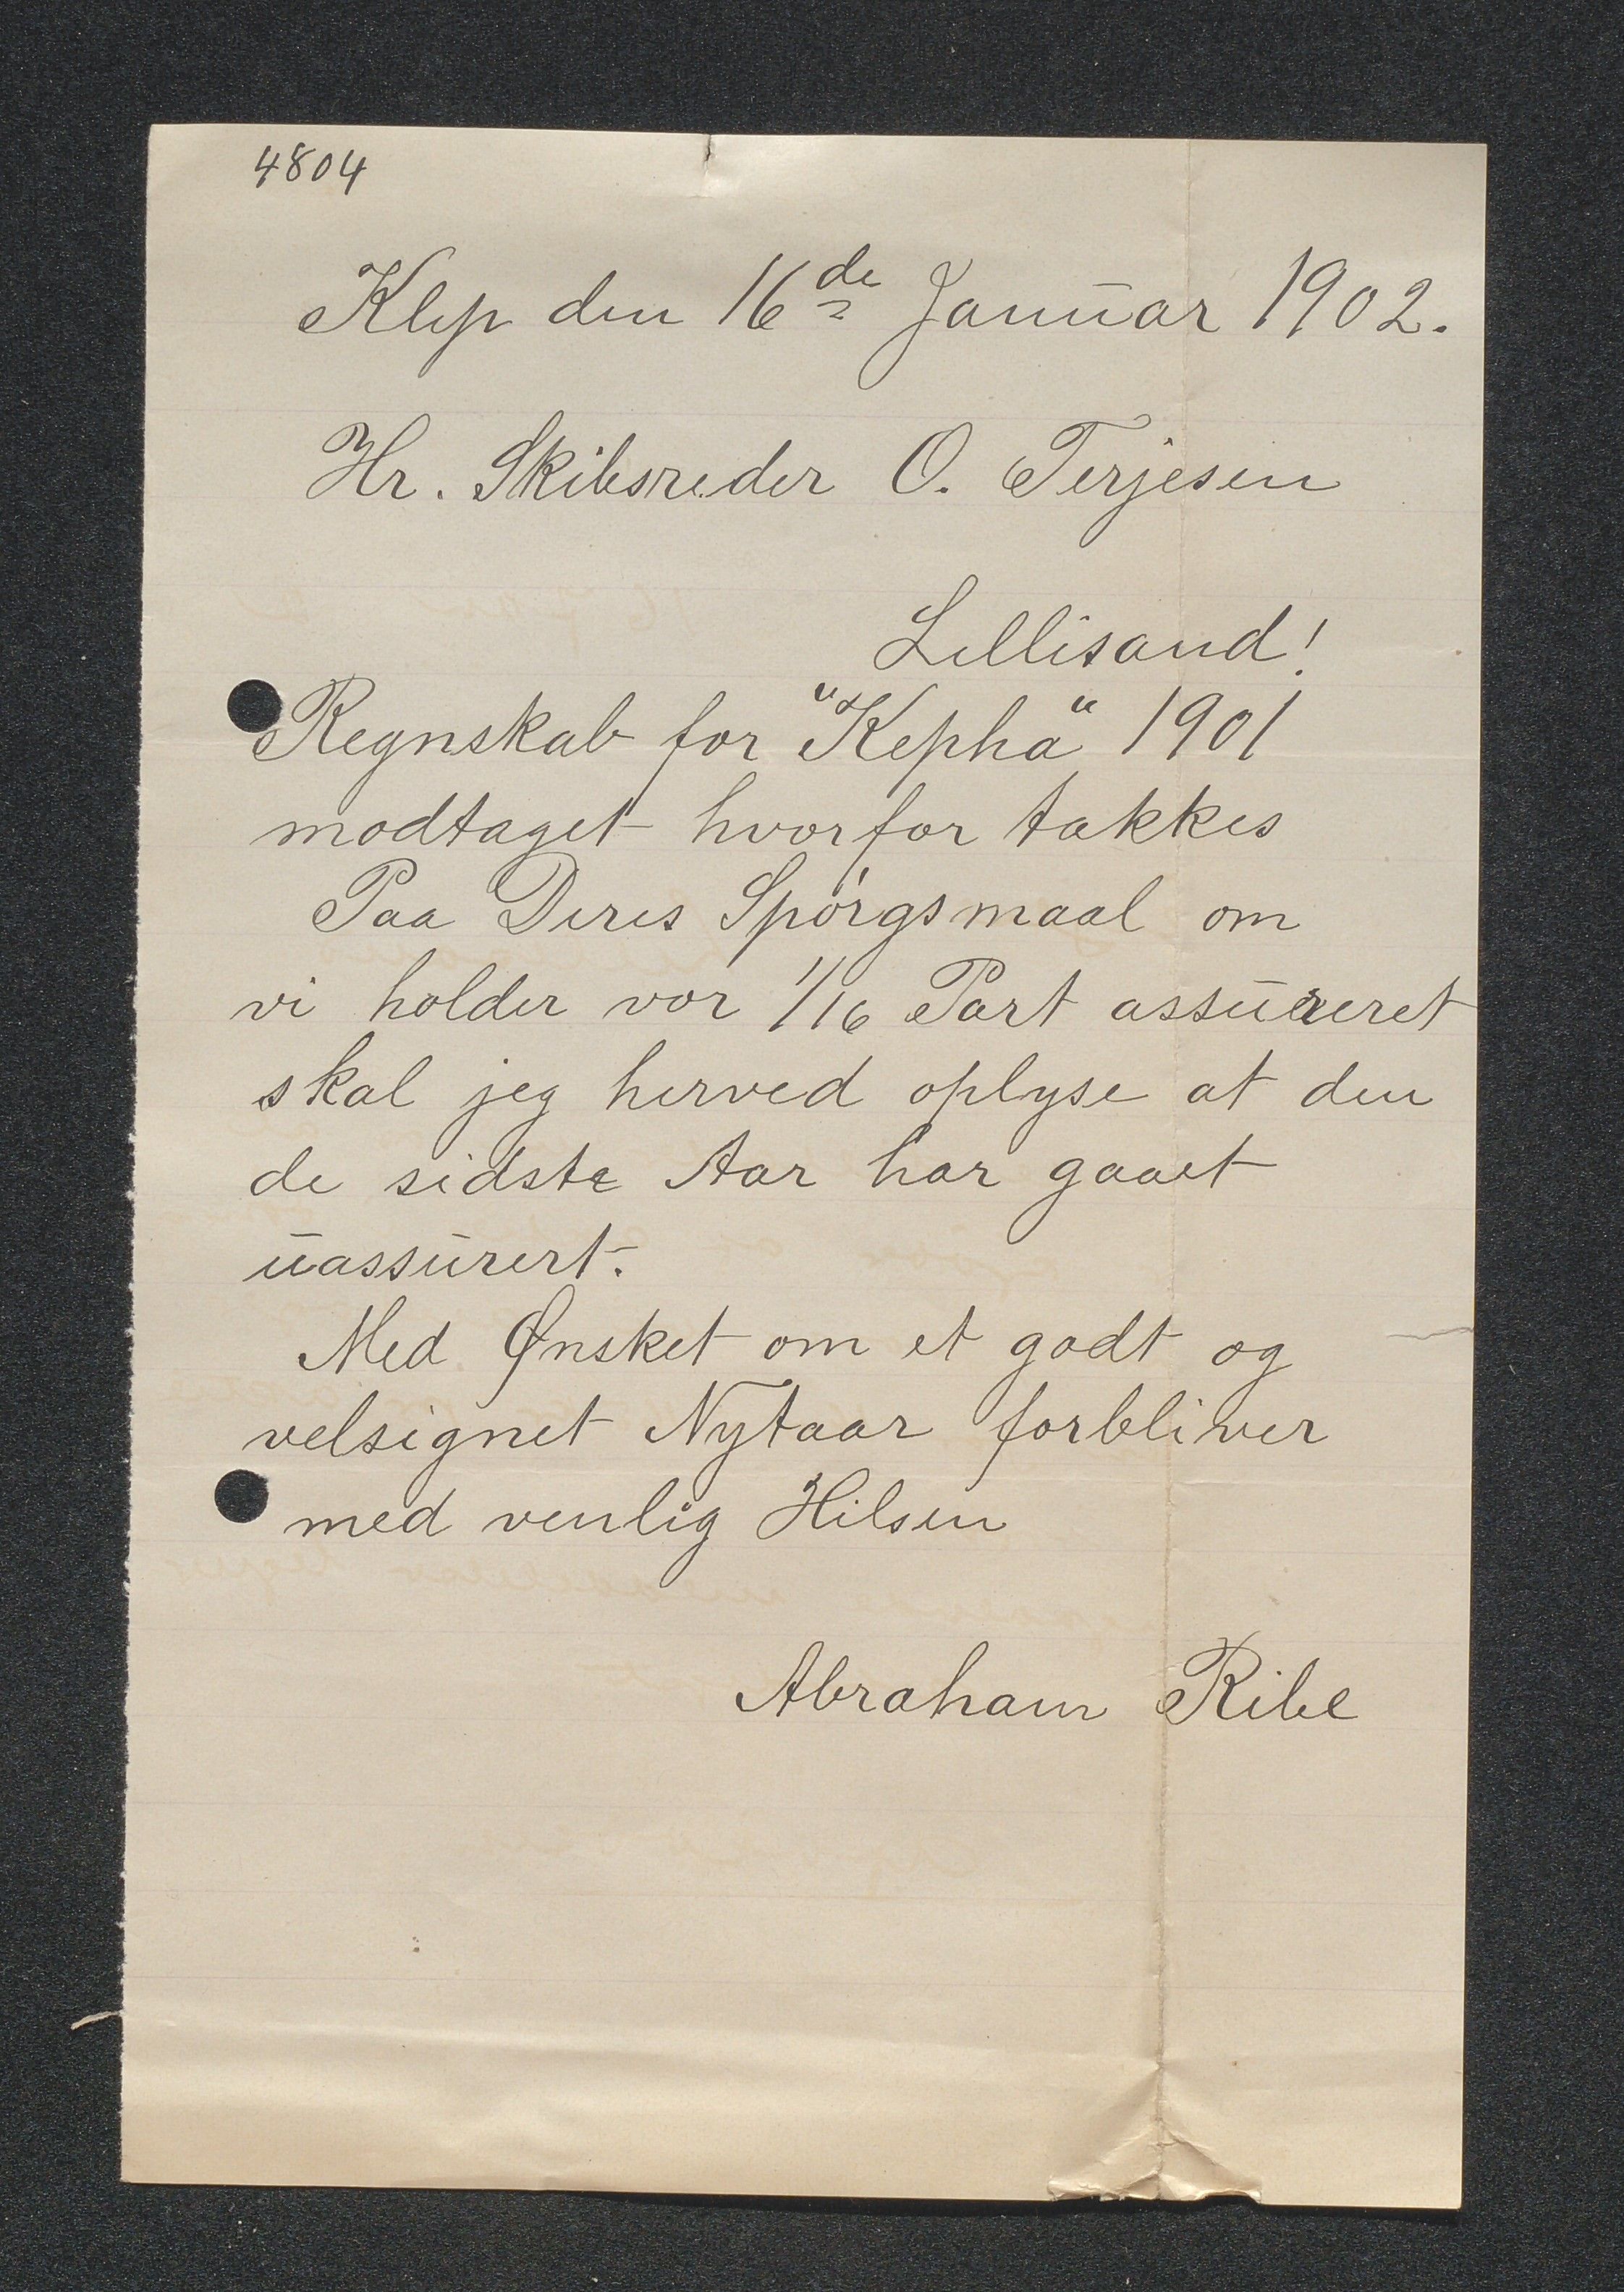 4804
Klep den 16de Januar 1902.
Hr. Skibsreder O. Terjesen
Lillisand!
Regnskab for "Kepha" 1901
modtaget hvorfor takkes
Paa Deres Spórgsmaal om
vi holder vor 1/16 Part assureret
skal jeg herved oplyse at den
de sidste Aar har gaaet
uassurert.
Med Ønsket om et godt og
velsignet Nytaar forbliver
med venlig Hilsen
Abraham Ribe